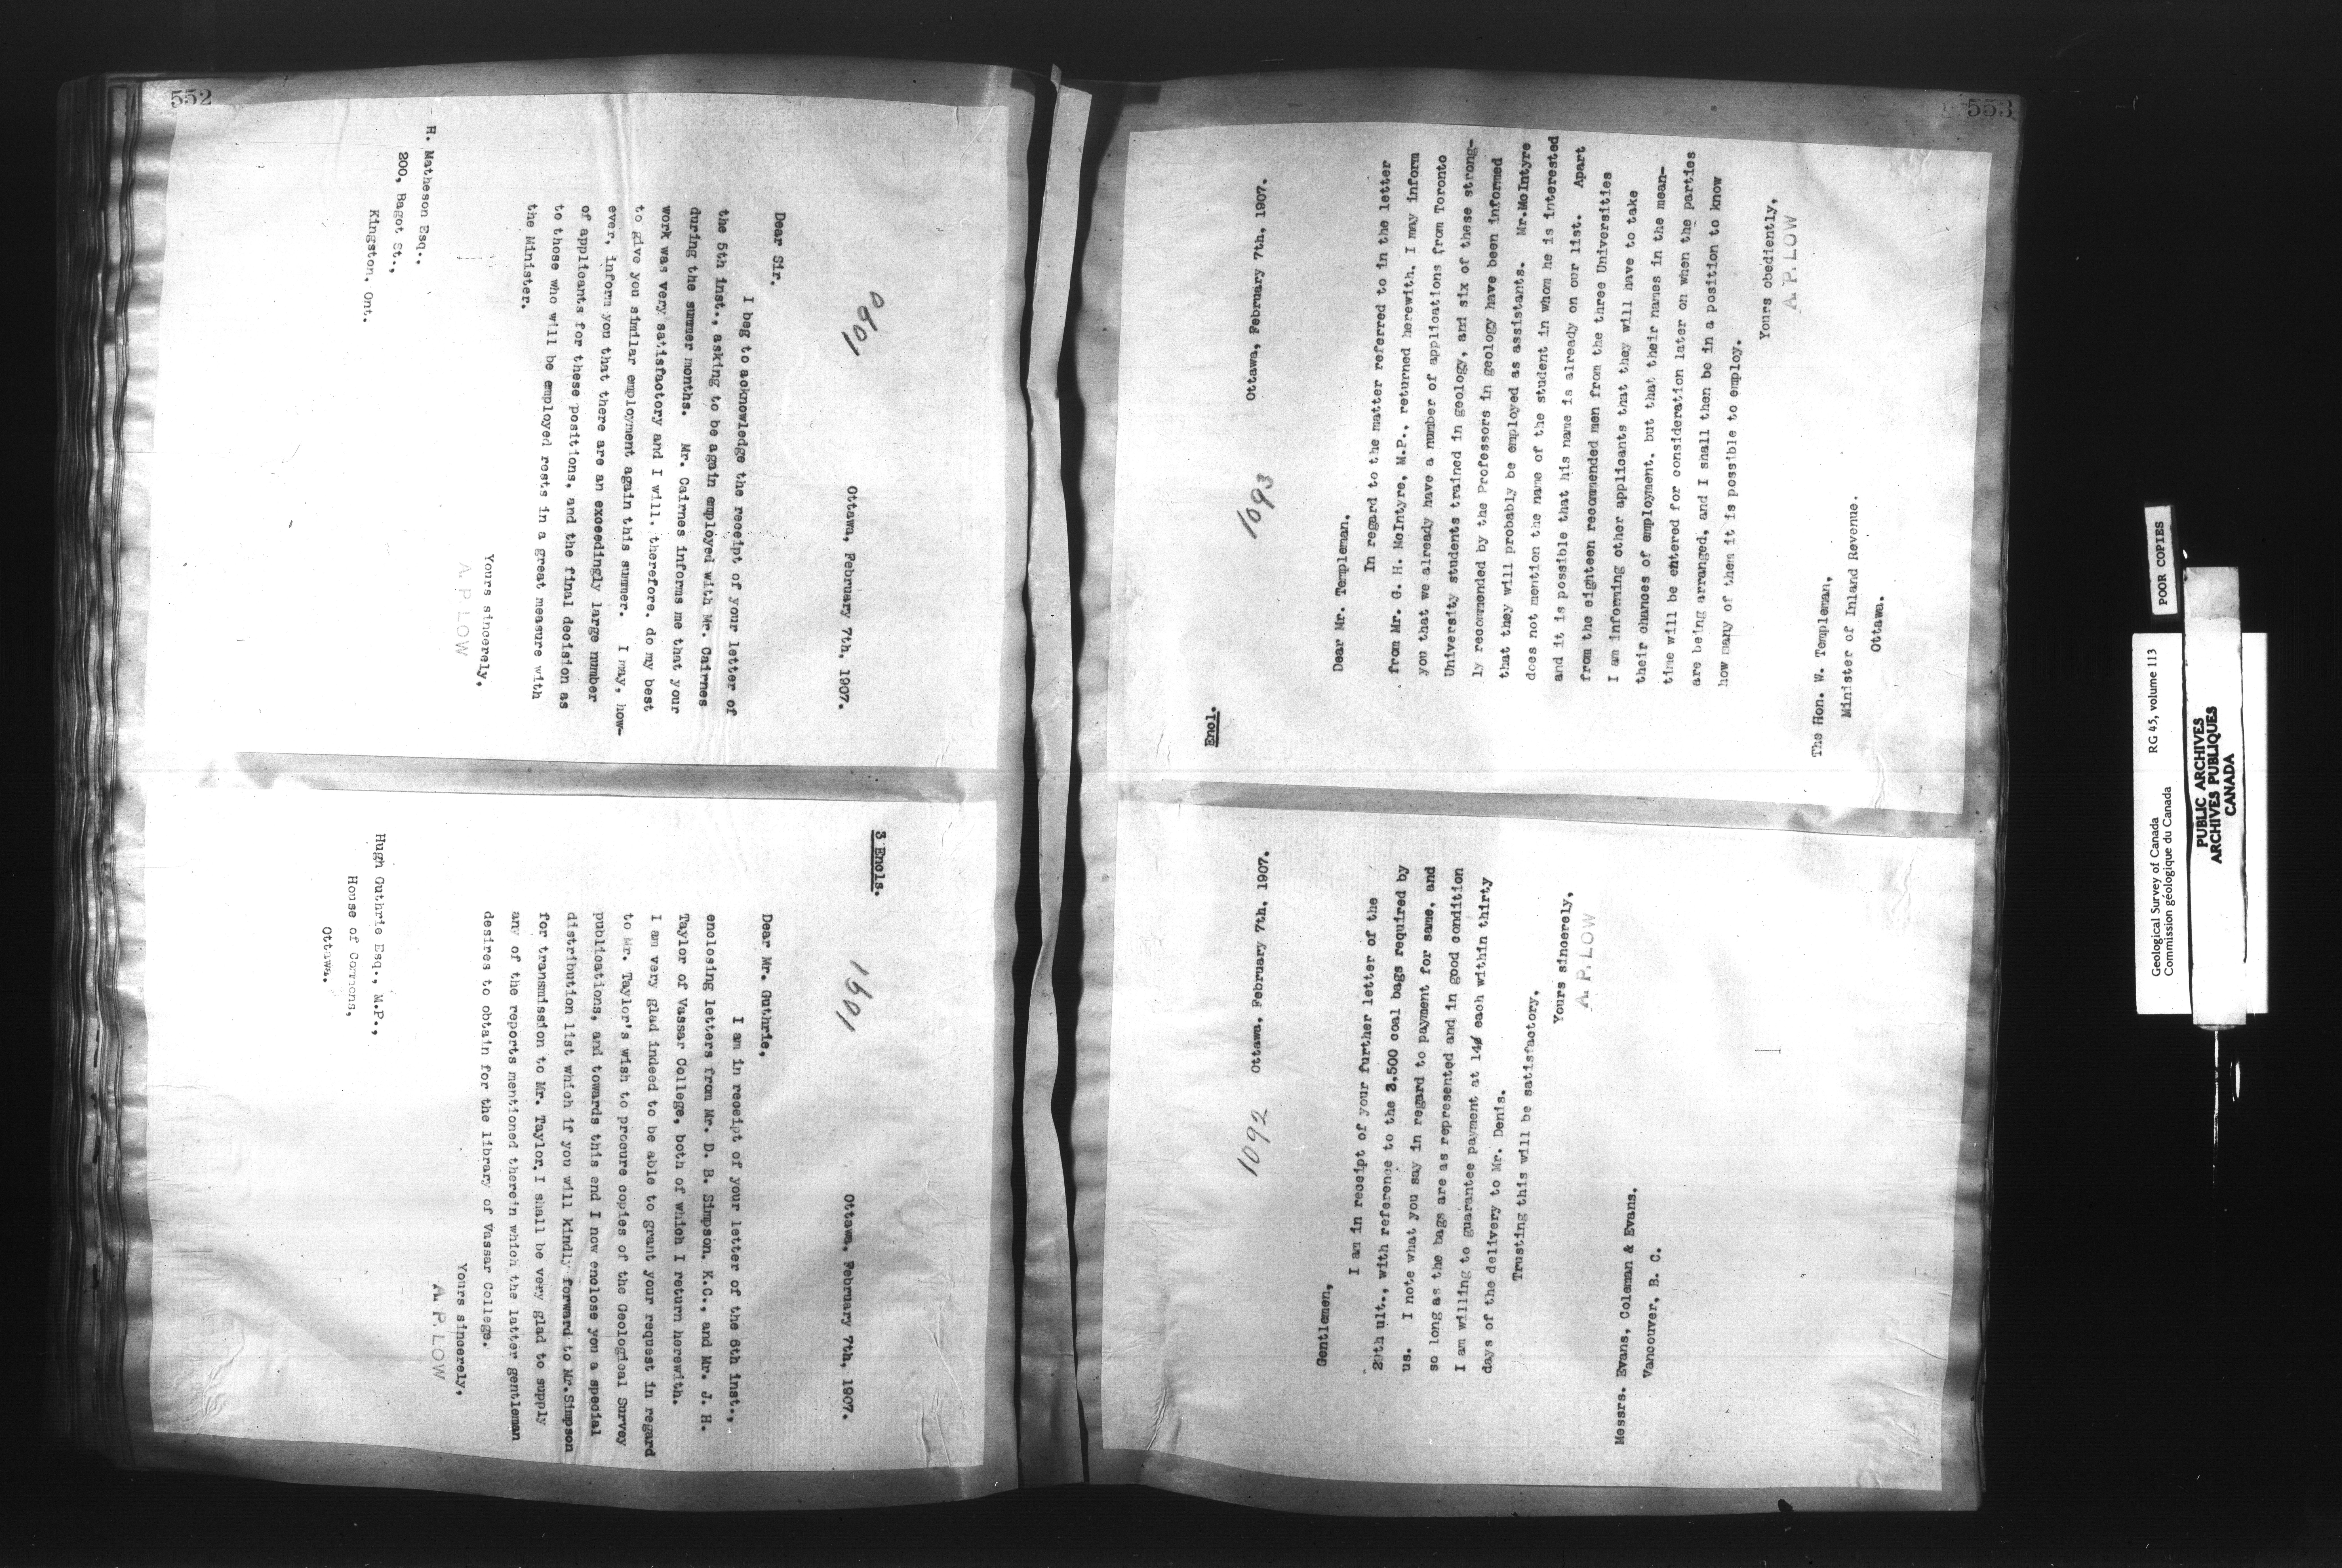 552
1090
Ottawa, February 7th, 1907.
Dear Sir.
I beg to acknowledge the receipt of your letter of
the 5th inst., asking to be again employed with Mr. Cairnes
during the summer months. Mr. Cairnes informs me that your
work was very satisfactory and I will, therefore, do my best
to give you similar employment again this summer. I may, how-
ever, inform you that there are an exceedingly large number
of applicants for these positions, and the final decision as
to those who will be employed rests in a great measure with
the Minister.
Yours sincerely,
A. P. LOW
H. Matheson Esq.,
200, Bagot St.,
Kingston, Ont.
3 Encls.
1091
Ottawa, February 7th, 1907.
Dear Mr. Guthrie,
I am in receipt of your letter of the 6th inst.,
enclosing letters from Mr. D. B. Simpson, K.C., and Mr. J. H.
Taylor of Vassar College, both of which I return herewith.
I am very glad indeed to be able to grant your request in regard
to Mr. Taylor's wish to procure copies of the Geological Survey
publications, and towards this end I now enclose you a special
distribution list which if you will kindly forward to Mr.Simpson
for transmission to Mr. Taylor, I shall be very glad to supply
any of the reports mentioned therein which the latter gentleman
desires to obtain for the library of Vassar College.
Yours sincerely,
A. P. LOW
Hugh Guthrie Esq., M.P.,
House of Commons,
Ottawa.
553
Encl.
1093
Ottawa, February 7th, 1907.
Dear Mr. Templeman,
In regard to the matter referred to in the letter
from Mr. G. H. McIntyre, M.P., returned herewith, I may inform
you that we already have a number of applications from Toronto
University students trained in geology, and six of these strong-
ly recommended by the Professors in geology have been informed
that they will probably be employed as assistants. Mr.McIntyre
does not mention the name of the student in whom he is interested
and it is possible that his name is already on our list. Apart
from the eighteen recommended men from the three Universities
I am informing other applicants that they will have to take
their chances of employment, but that their names in the mean-
time will be entered for consideration later on when the parties
are being arranged, and I shall then be in a position to know
how many of them it is possible to employ.
Yours obediently,
A. P. LOW
The Hon. W. Templeman,
Minister of Inland Revenue.
Ottawa.
1092
Ottawa, February 7th, 1907.
Gentlemen,
I am in receipt of your further letter of the
29th ult., with reference to the 3,500 coal bags required by
us. I note what you say in regard to payment for same, and
so long as the bags are as represented and in good condition
I am willing to guarantee payment at 14¢ each within thirty
days of the delivery to Mr. Denis.
Trusting this will be satisfactory,
Yours sincerely,
A. P. LOW
Messrs. Evans, Coleman & Evans.
Vancouver, B. C.
POOR COPIES
Geological Survey of Canada RG 45, volume 113
Commission géologique du Canada
PUBLIC ARCHIVES
ARCHIVES PUBLIQUES
CANADA